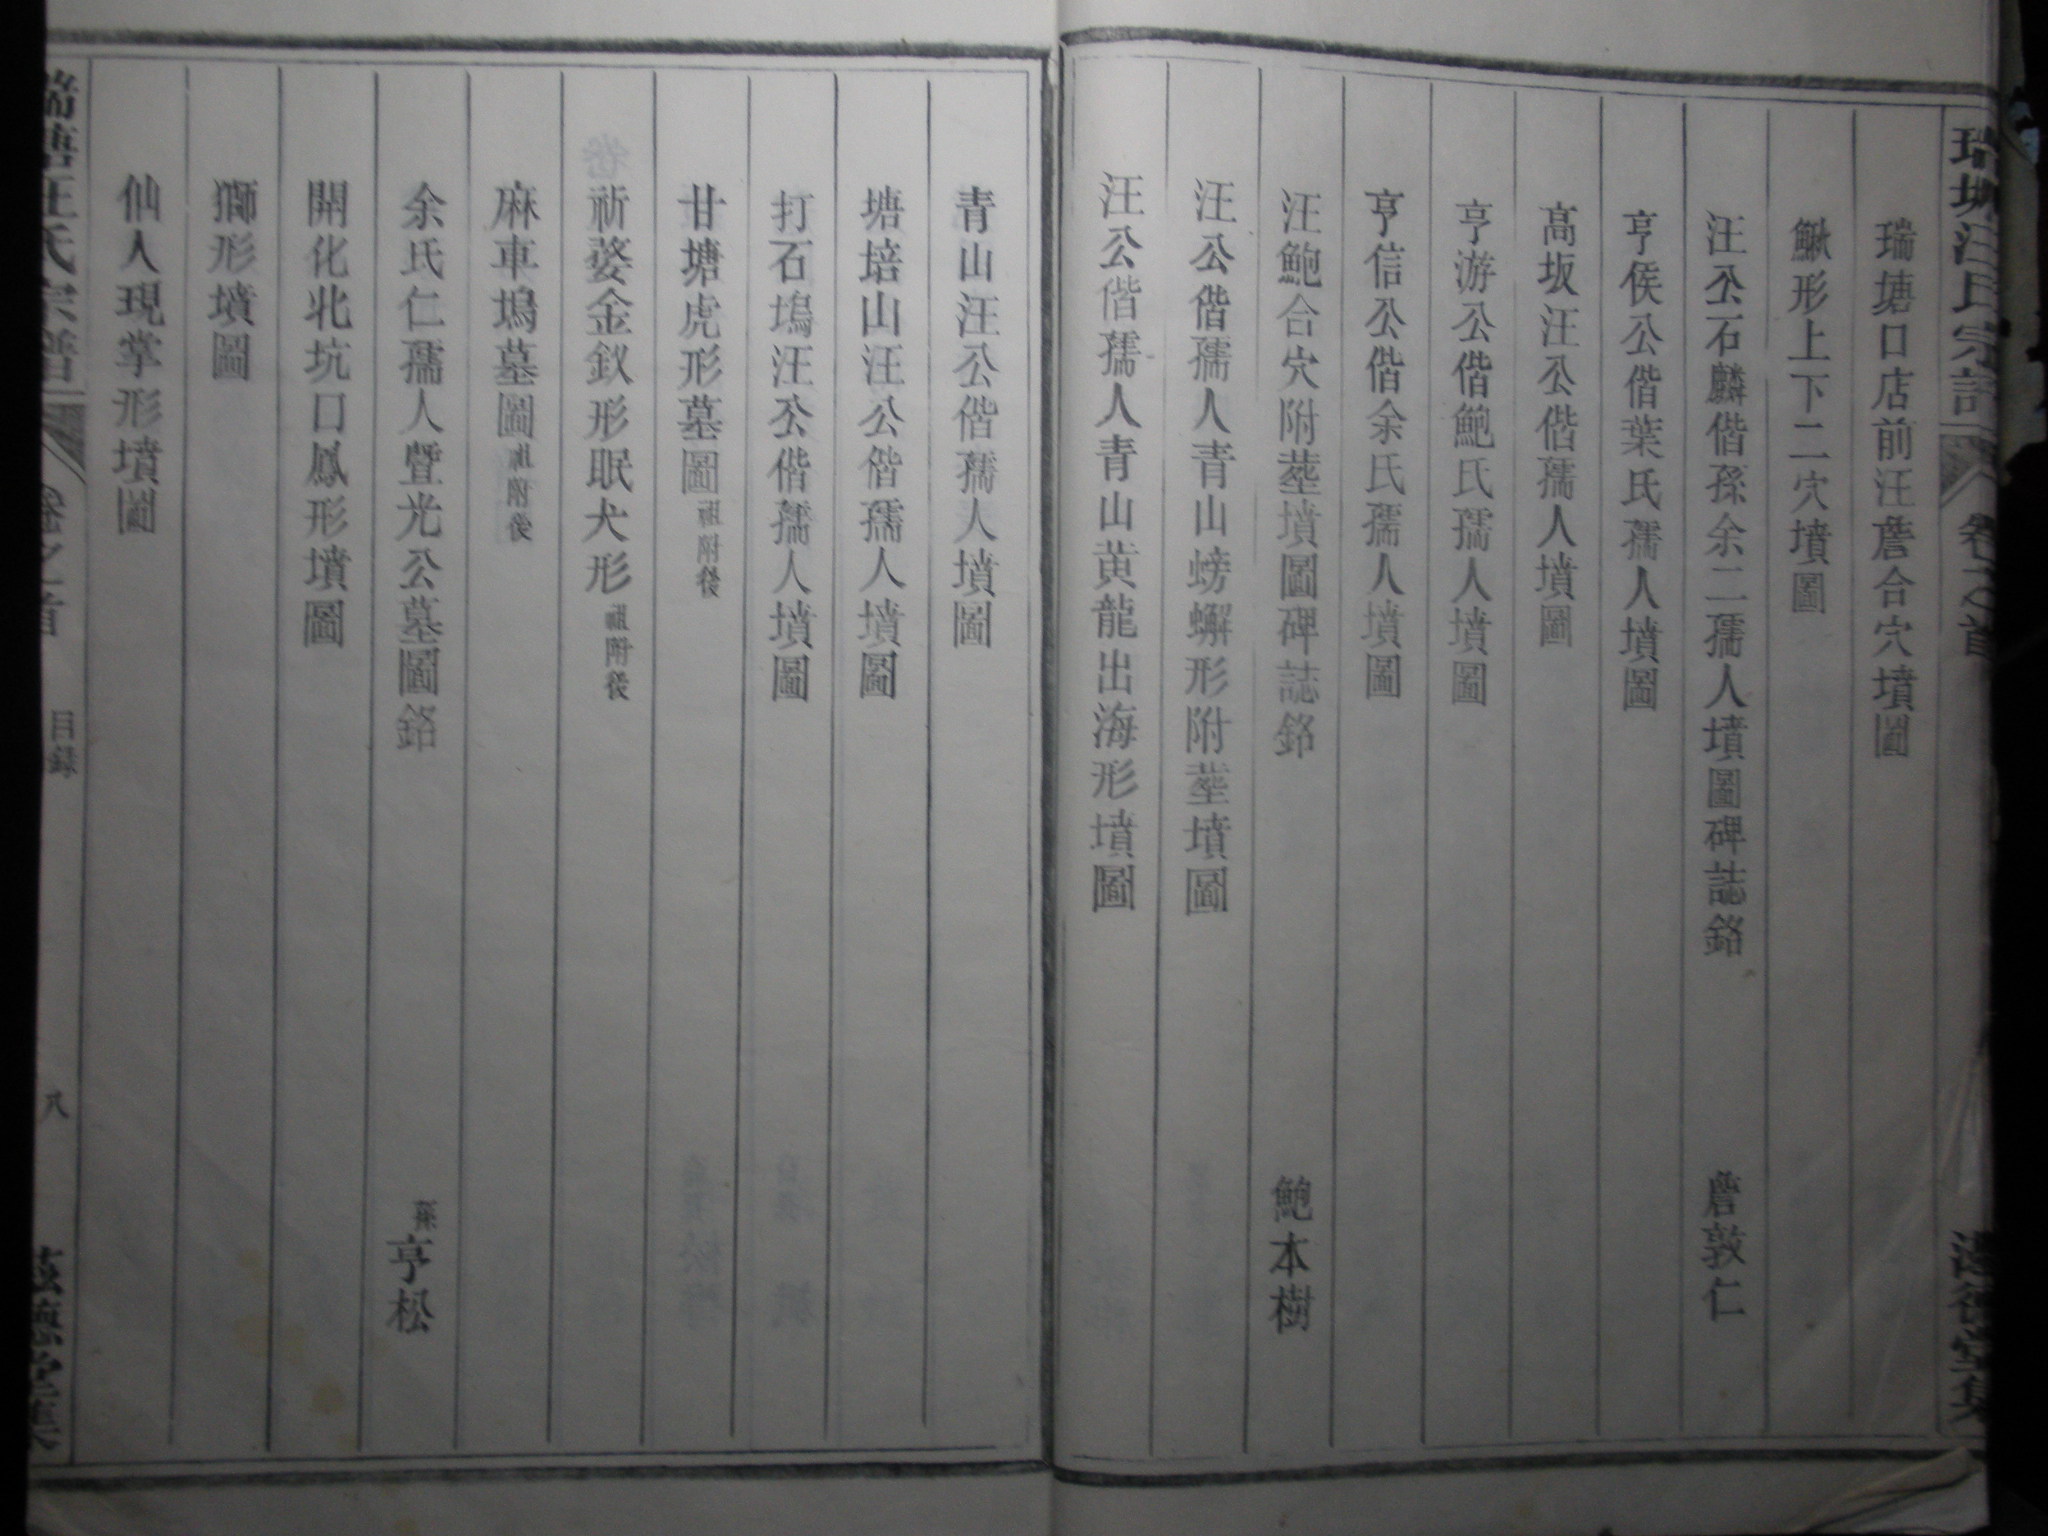 瑞塘汪氏宗譜
卷之首
瑞塘口店前汪詹合穴墳圖
鰍形上下二穴墳圖
汪公石麟偕孫余二孺人墳圖碑誌銘 詹敦仁
亨侯公偕葉氏孺人墳圖
高坂汪公偕孺人墳圖
亨游公偕鮑氏孺人墳圖
亨信公偕余氏孺人墳圖
汪鮑合穴附塟墳圖碑誌銘 鮑本樹
汪公偕孺人青山螃蠏形附塟墳圖
汪公偕孺人青山黃龍出海形墳圖
青山汪公偕孺人墳圖
塘培山汪公偕孺人墳圖
打石塢汪公偕孺人墳圖
甘塘虎形墓圖祖附後
祈婺金釵形眠犬形祖附後
麻車塢墓圖祖附後
余氏仁孺人暨光公墓圖銘 孫亨松
開化北坑口鳳形墳圖
獅形墳圖
仙人現掌形墳圖
瑞塘汪氏宗譜
卷之首
目錄
八
德堂集